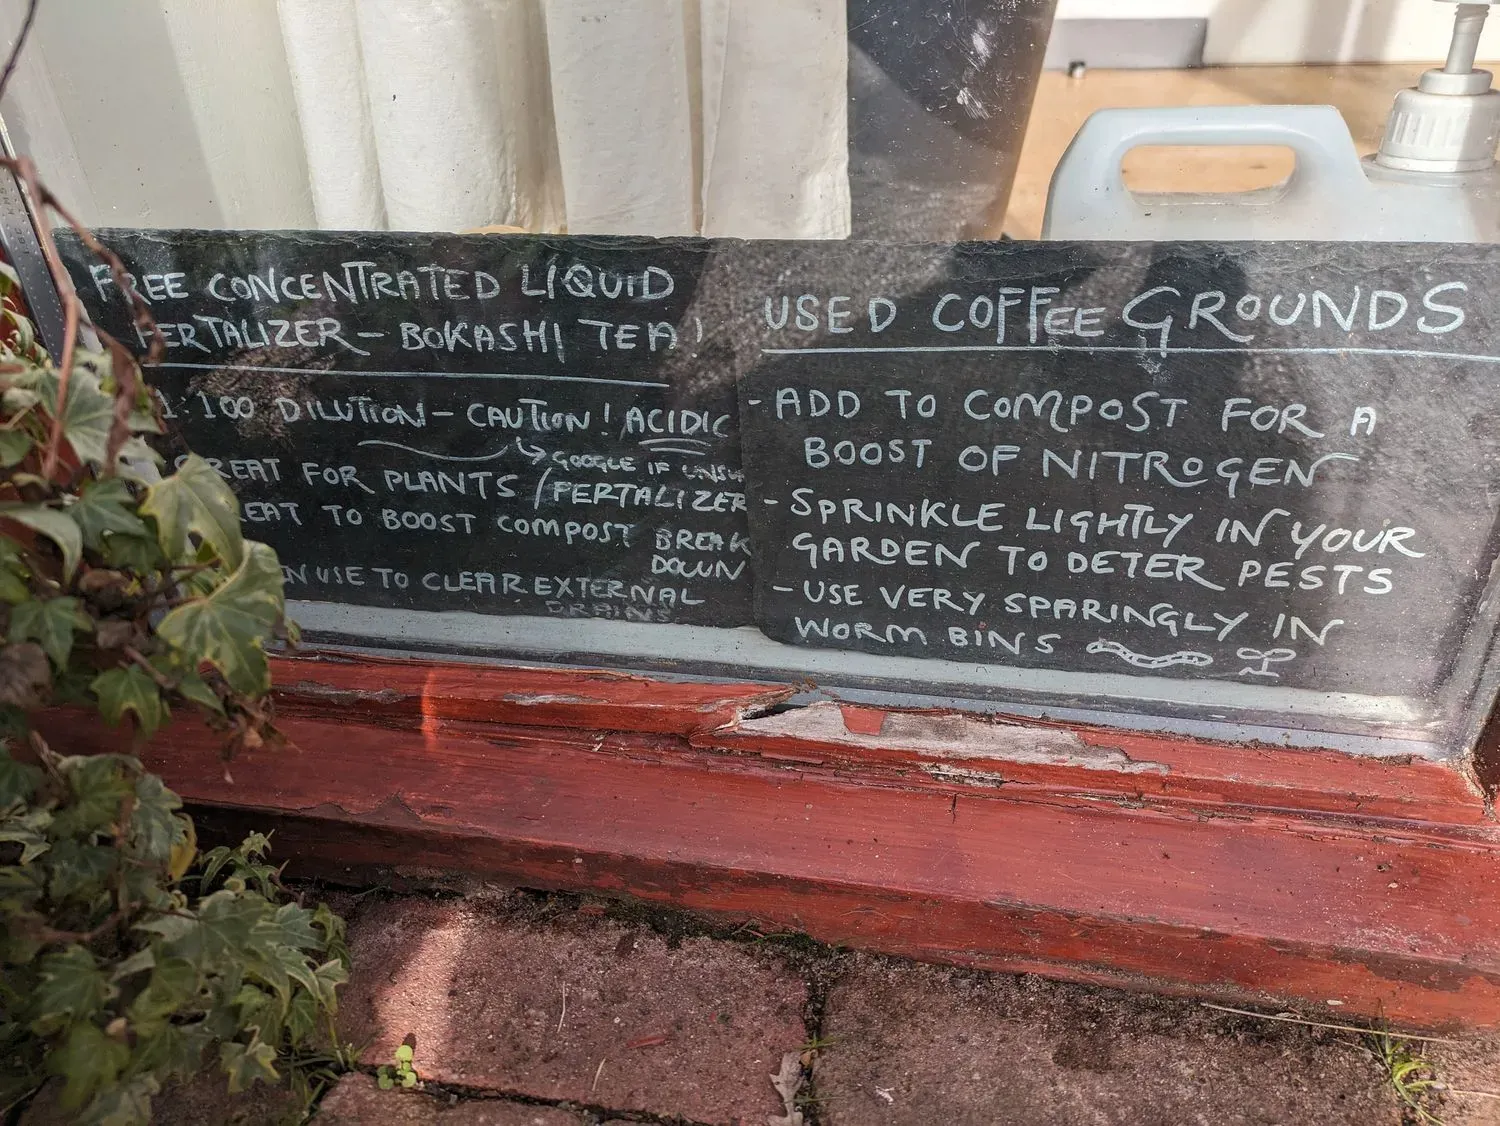 FREE CONCENTRATED LIQUID
FERTALIZER - BOKASHI TEA!
1:100 DILUTION - CAUTION! ACIDIC
GOOGLE IF
GREAT FOR PLANTS / FERTALIZER
TO BOOST COMPOST BREAK
DOWN
USE TO CLEAR EXTERNAL
DRAINS
USED COFFEE GROUNDS
- ADD TO COMPOST FOR A
BOOST OF NITROGEN
- SPRINKLE LIGHTLY IN YOUR
GARDEN TO DETER PESTS
- USE VERY SPARINGLY IN
WORM BINS